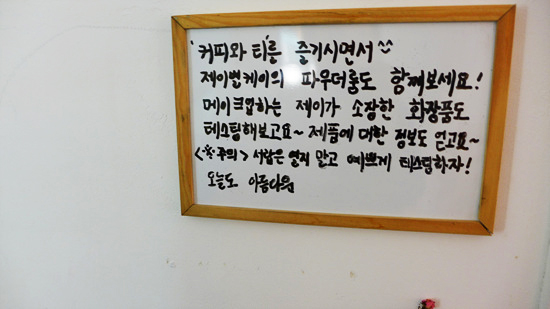 '커피와 티'를 즐기시면서 ^^
제이벨케이의 파우더룸도 함께보세요!
메이크업하는 제이가 소장한 화장품도
테스팅해보고요~ 제품에 대한 정보도 얻고요~
<※주의> 서랍은 열지 말고 예쁘게 테스팅하자!
오늘도 아름다움